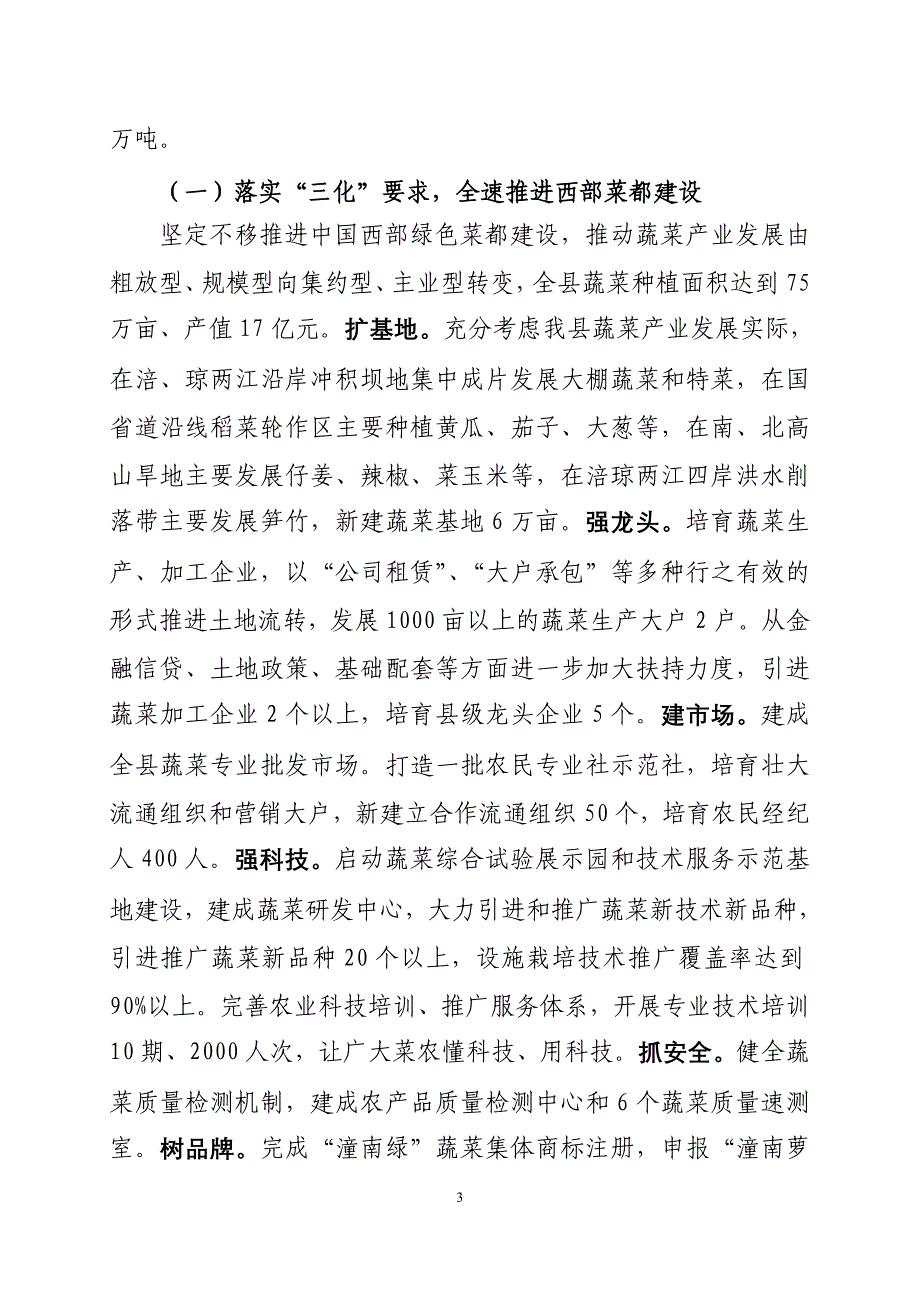 万吨。
（一）落实“三化”要求，全速推进西部菜都建设
坚定不移推进中国西部绿色菜都建设，推动蔬菜产业发展由
粗放型、规模型向集约型、主业型转变，全县蔬菜种植面积达到 75
万亩、产值 17 亿元。扩基地。充分考虑我县蔬菜产业发展实际，
在涪、琼两江沿岸冲积坝地集中成片发展大棚蔬菜和特菜，在国
省道沿线稻菜轮作区主要种植黄瓜、茄子、大葱等，在南、北高
山旱地主要发展仔姜、辣椒、菜玉米等，在涪琼两江四岸洪水削
落带主要发展笋竹，新建蔬菜基地 6 万亩。强龙头。培育蔬菜生
产、加工企业，以“公司租赁”、“大户承包”等多种行之有效的
形式推进土地流转，发展 1000 亩以上的蔬菜生产大户 2 户。从金
融信贷、土地政策、基础配套等方面进一步加大扶持力度，引进
蔬菜加工企业 2 个以上，培育县级龙头企业 5 个。建市场。建成
全县蔬菜专业批发市场。打造一批农民专业社示范社，培育壮大
流通组织和营销大户，新建立合作流通组织 50 个，培育农民经纪
人 400 人。强科技。启动蔬菜综合试验展示园和技术服务示范基
地建设，建成蔬菜研发中心，大力引进和推广蔬菜新技术新品种，
引进推广蔬菜新品种 20 个以上，设施栽培技术推广覆盖率达到
90%以上。完善农业科技培训、推广服务体系，开展专业技术培训
10 期、2000 人次，让广大菜农懂科技、用科技。抓安全。健全蔬
菜质量检测机制，建成农产品质量检测中心和 6 个蔬菜质量速测
室。树品牌。完成“潼南绿”蔬菜集体商标注册，申报“潼南萝
3